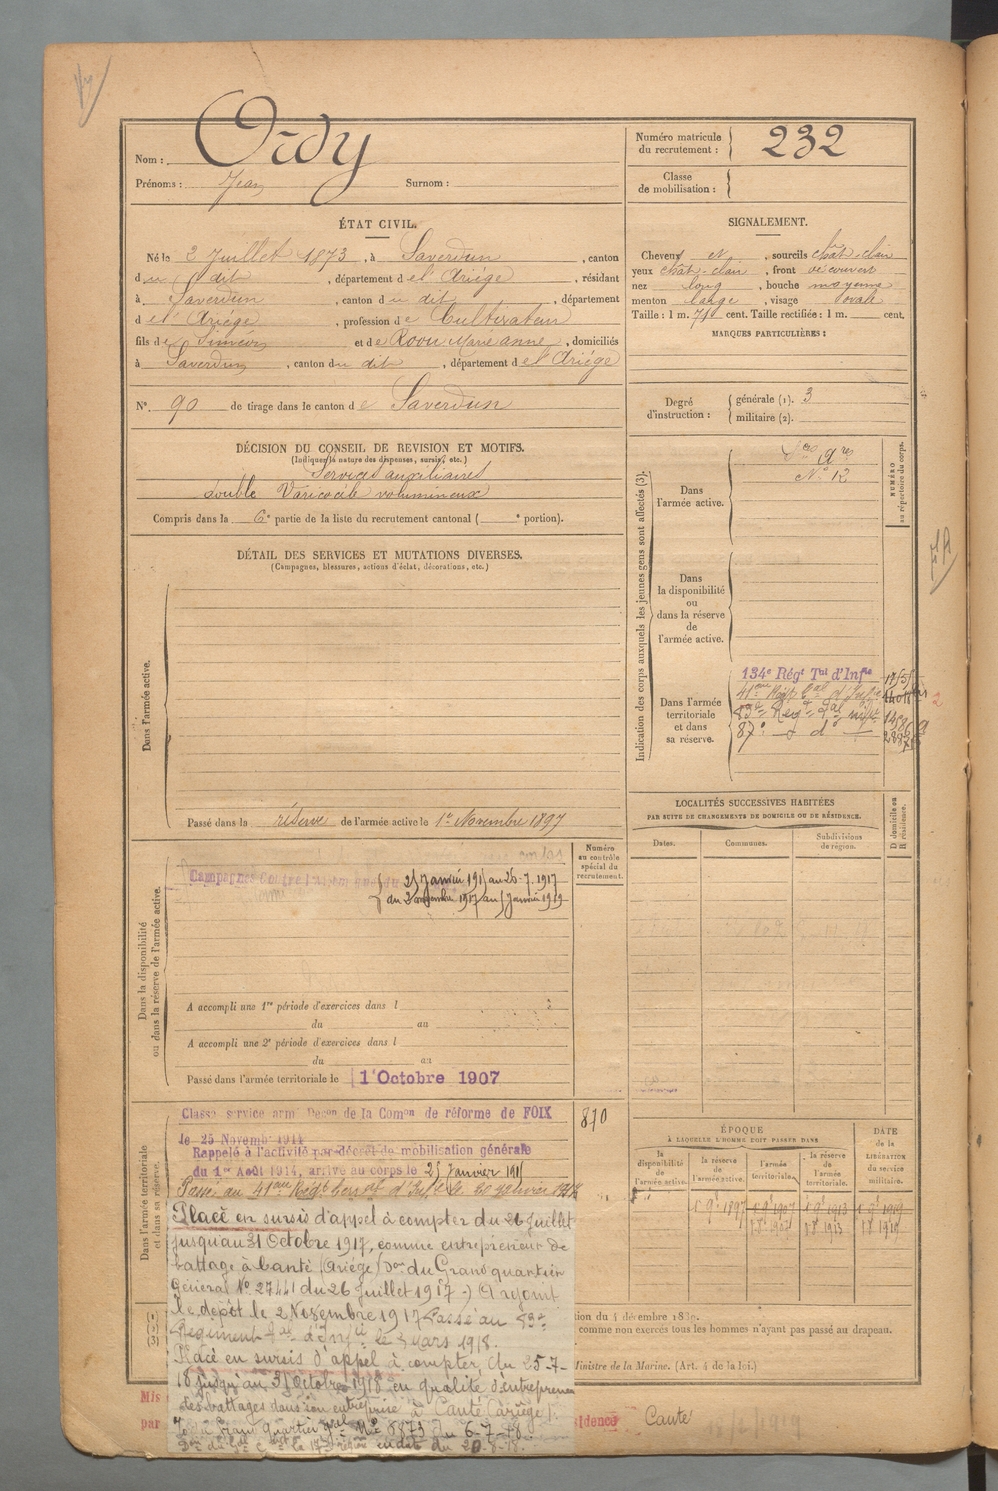 Nom : Ordy
Prénoms : Jean Surnom :
Numéro matricule du recrutement : 232
Classe de mobilisation :
ÉTAT CIVIL.
Né le 2 Juillet 1873, à Saverdun, canton
du dit, département de l'Ariége, résidant
à Saverdun, canton du dit, département
de l'Ariége, profession de Cultivateur
fils de Siméon et de Roou Marie anne, domiciliés
à Saverdun, canton du dit, département de l'Ariége
N°. 90 de tirage dans le canton de Saverdun
SIGNALEMENT.
Cheveux et sourcils chât-clair
yeux chât-clair, front découvert
nez long, bouche moyenne
menton large, visage ovale
Taille : 1 m. 71 cent. Taille rectifiée : 1 m. cent.
MARQUES PARTICULIÈRES :
Degré d'instruction : générale (1). 3
militaire (2).
DÉCISION DU CONSEIL DE REVISION ET MOTIFS.
(Indiquer la nature des dispenses, sursis, etc.)
Services auxiliaires
double Varicocèle volumineux
Compris dans la 6e partie de la liste du recrutement cantonal ( e portion).
DÉTAIL DES SERVICES ET MUTATIONS DIVERSES.
(Campagnes, blessures, actions d'éclat, décorations, etc.)
Dans l'armée active.
Passé dans la réserve de l'armée active le 1er Novembre 1897
Indication des corps auxquels les jeunes gens sont affectés (3).
NUMÉRO au répertoire du corps.
Dans l'armée active.
N° 12
Dans la disponibilité ou dans la réserve de l'armée active.
Dans l'armée territoriale et dans sa réserve.
134e Régt Tal d'Infie
41eme Régt
83e Régt
87e do
LOCALITÉS SUCCESSIVES HABITÉES
PAR SUITE DE CHANGEMENTS DE DOMICILE OU DE RÉSIDENCE.
Dates. Communes. Subdivisions de région. D domicile ou R résidence.
Dans la disponibilité ou dans la réserve de l'armée active.
Numéro au contrôle spécial du recrutement.
Campagnes Contre
25 Janvier 1915 au 26-7-1917
du 2 novembre 1917 au 5 Janvier 1919
A accompli une 1re période d'exercices dans l
du au
A accompli une 2e période d'exercices dans l
du au
Passé dans l'armée territoriale le 1er Octobre 1907
Dans l'armée territoriale et dans sa réserve.
Classé service armé Decon de la Comon de réforme de FOIX
le 25 Novembre 1914
870
Rappelé à l'activité par décret de mobilisation générale
du 1er Août 1914, arrivé au corps le 25 Janvier 1915
Passé au 41eme Régt
Placé en sursis d'appel à compter du 26 Juillet
jusqu'au 31 Octobre 1917, comme entrepreneur de
battage à Canté (Ariège) Don du Grand quartier
Général N° 27441 du 26 Juillet 1917 - A rejoint
le dépôt le 2 Novembre 1917 Passé au 83e
Régiment d'Infie le 3 Mars 1918.
Placé en sursis d'appel à compter du 25-7-
18 jusqu'au 31 Octobre 1918 en qualité d'entrepreneur
des battages dans son entreprise à Canté (Ariège).
Grand Quartier Gral N° 8873 du 6-7-18
17e région en date du 20-8-18.
ÉPOQUE
À LAQUELLE L'HOMME DOIT PASSER DANS
la disponibilité de l'armée active. la réserve de l'armée active. l'armée territoriale. la réserve de l'armée territoriale.
DATE de la LIBÉRATION du service militaire.
1 9e 1897 1 9e 1907 1 9e 1913 1 9e 1919
ion du 4 décembre 1889.
comme non exercés tous les hommes n'ayant pas passé au drapeau.
Ministre de la Marine. (Art. 4 de la loi.)
Mis
par
sidence Canté